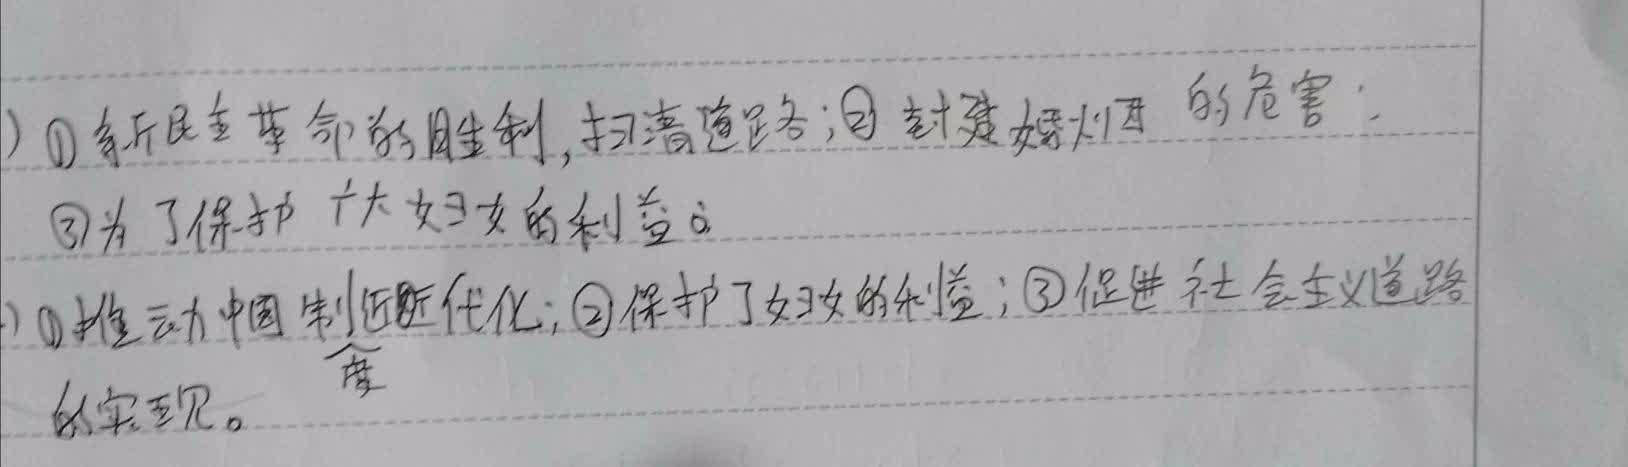 )①新民主革命的胜利,扫清道路;②封建婚姻的危害;
③为了保护广大妇女的利益。
)①推动中国制度近代化;②保护了妇女的利益;③促进社会主义道路
的实现。